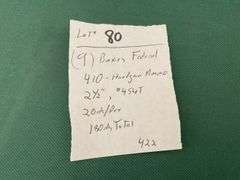 Lot# 80
(9) Boxes Federal
410 - Handgun Ammo
2½", #454T
20rds/Box
180rds Total
422